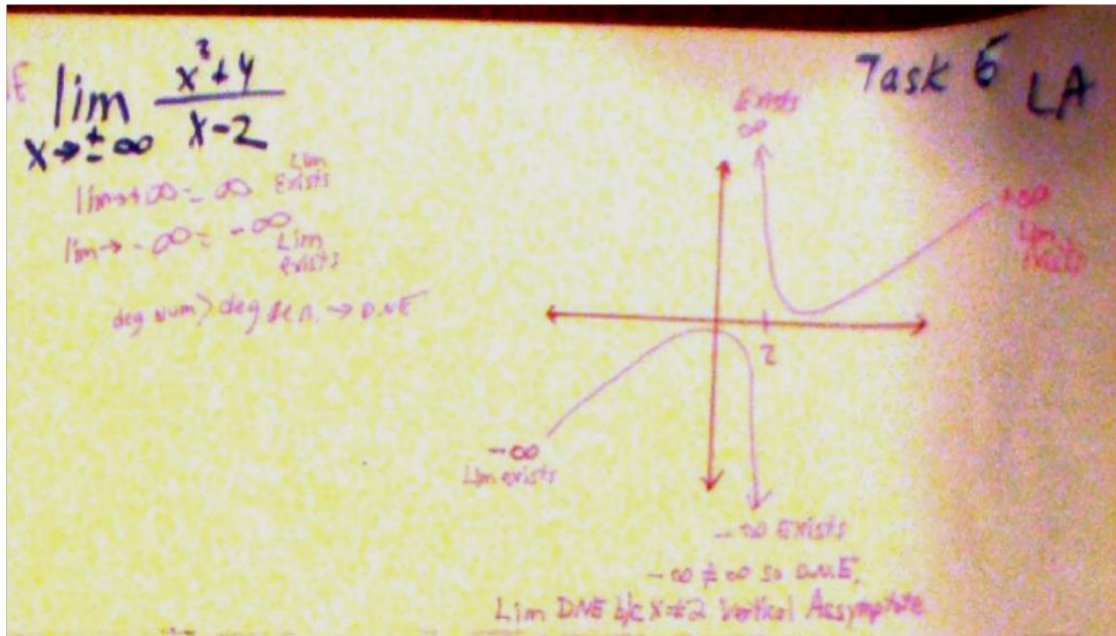 lim x²+4
x→±∞ x-2
lim→+∞ = ∞ Lim Exists
lim→ -∞ = -∞ Lim exists
deg num > deg den. → D.N.E
Task 6 LA
Exists
∞
+∞
Lim
2
-∞
Lim exists
-∞ Exists
-∞ ≠ ∞ so D.N.E.
Lim DNE b/c x≠2 Vertical Assymptote